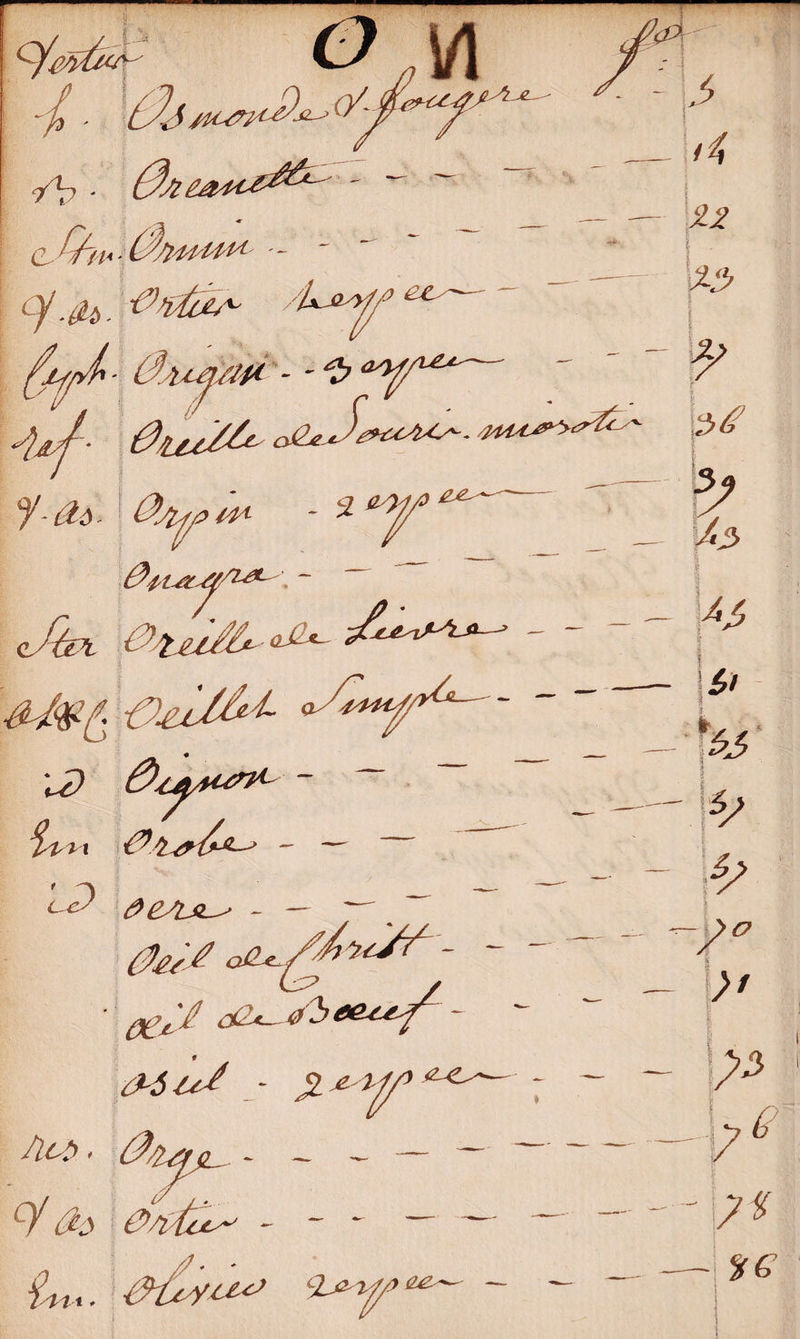 Vertus O f.º
h. Osmonde V. fougere f. 5
b. Oreanette 14
Stm. Ormin 22
V. as. Ortier 4 espees 23
Ceph. Origan 3 espees 27
Raf. Oreille de Souris. miosotis 36
V. as. Orpin 2 espees 39
Onagra 43
Ster Oreille de Lievre 45
al & C. Oeillet Simple 51
id Oignon 55
Em Orobe 57
id oere 57
Oeil de Christ 70
oeil de Boeuf 71
Osiel 2 espees 73
Res. Orge 76
V as Ortie 78
Em. Olivier 2 espees 86